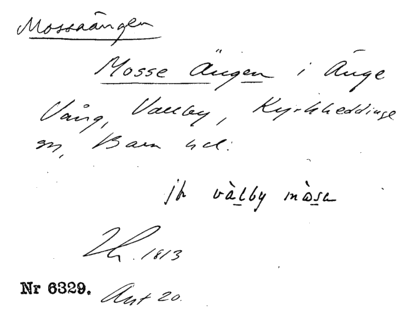 Mossaängen
Mosse Ängen i Änge
Vång, Vallby, Kyrkheddinge
sn, Bara hd:
jfr vàlby mòsa
1813
Nr 6329. Ant 20.